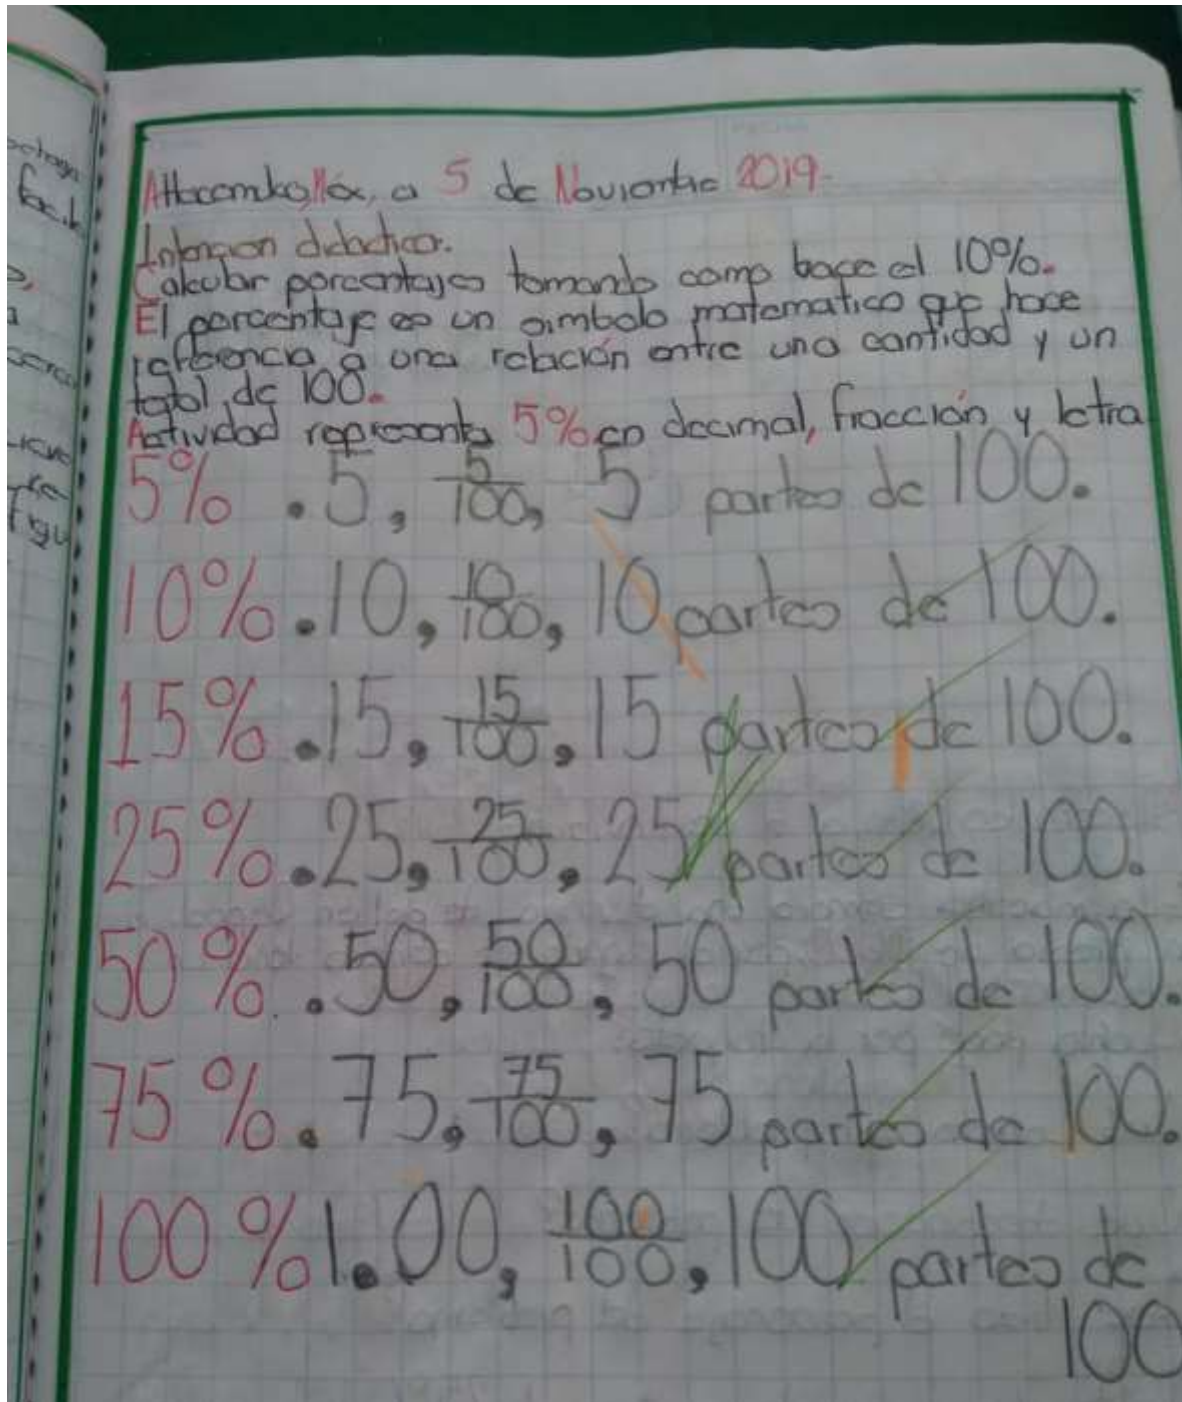 a 5 de Noviembre 2019.
Intencion didactica.
Calcular porcentajes tomando como base el 10%.
El porcentaje es un simbolo matematico que hace
referencia a una relación entre una cantidad y un
total de 100.
Actividad representa 5% en decimal, fracción y letra
5% .5, 5/100, 5 partes de 100.
10% .10, 10/100, 10 partes de 100.
15% .15, 15/100, 15 partes de 100.
25% .25, 25/100, 25 partes de 100.
50% .50, 50/100, 50 partes de 100.
75% .75, 75/100, 75 partes de 100.
100% 1.00, 100/100, 100 partes de
100